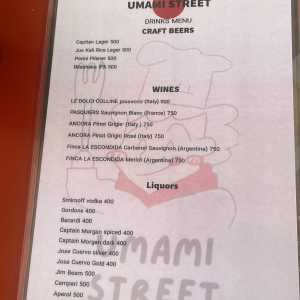 UMAMI STREET
DRINKS MENU
CRAFT BEERS
Capitan Lager 500
Jun Kali Rice Lager 500
Ponni Pilsner 500
IPA 500
WINES
LE DOLCI COLLINE prosecco (Italy) 800
PASQUIERS Sauvignon Blanc (France) 750
ANCORA Pinot Grigio (Italy) 750
ANCORA Pinot Grigio Rosé (Italy) 750
Finca LA ESCONDIDA Carbenet Sauvignon (Argentina) 750
FINCA LA ESCONDIDA Merlot (Argentina) 750
Liquors
Smirnoff vodka 400
Gordons 400
Barardi 400
Captain Morgan spiced 400
Captain Morgan dark 400
Jose Cuervo silver 400
Jose Cuervo Gold 400
Jim Beam 500
Campari 500
Aperol 500
UMAMI
STREET